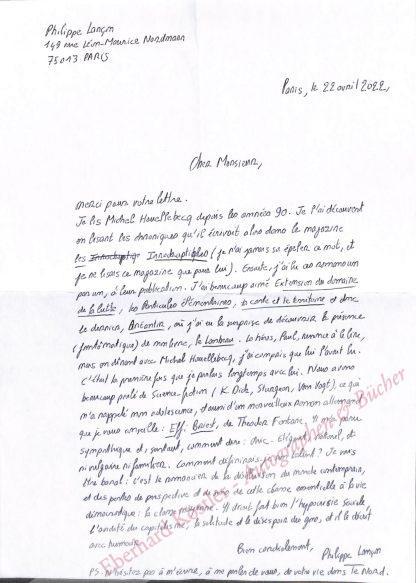 Philippe Lançon
149 rue Léon-Maurice Nordmann
75013 PARIS
Paris, le 22 avril 2022,
Cher Monsieur,
Merci pour votre lettre.
Je lis Michel Houellebecq depuis les années 90. Je l'ai découvert
en lisant les chroniques qu'il écrivait alors dans le magazine
les Inrockuptibles (je n'ai jamais su épeler ce mot, et
je ne lisais ce magazine que pour lui). Ensuite, j'ai lu ses romans un
par un, à leur publication. J'ai beaucoup aimé Extension du domaine
de la lutte, les Particules élémentaires, la carte et le territoire et donc
le dernier, Anéantir, où j'ai eu la surprise de découvrir la présence
(fantomatique) de mon livre, le Lambeau. Le héros, Paul, renonce à le lire,
mais en dînant avec Michel Houellebecq, j'ai compris que lui l'avait lu.
C'était la première fois que je parlais longtemps avec lui. Nous avons
beaucoup parlé de science-fiction (K. Dick, Sturgeon, Van Vogt), ce qui
m'a rappelé mon adolescence, et aussi d'un merveilleux roman allemand
que je vous conseille : Effi Briest, de Theodor Fontane. Il m'a paru
sympathique et, surtout, comment dire : chic. Élégant, naturel, et
ni vulgaire ni familier. Comment définirais-je son talent ? Je vais
être banal : c'est le romancier de la désillusion du monde contemporain,
et des pertes de perspective et de sens de cette classe essentielle à la vie
démocratique : la classe moyenne. Il décrit fort bien l'hypocrisie sociale,
l'avidité du capitalisme, la solitude et le désespoir des gens, et il le décrit
avec humour.
Bien cordialement,
Philippe Lançon
PS. N'hésitez pas à m'écrire, à me parler de vous, de votre vie dans le Nord.
Eberhard Köstler Autographen & Bücher